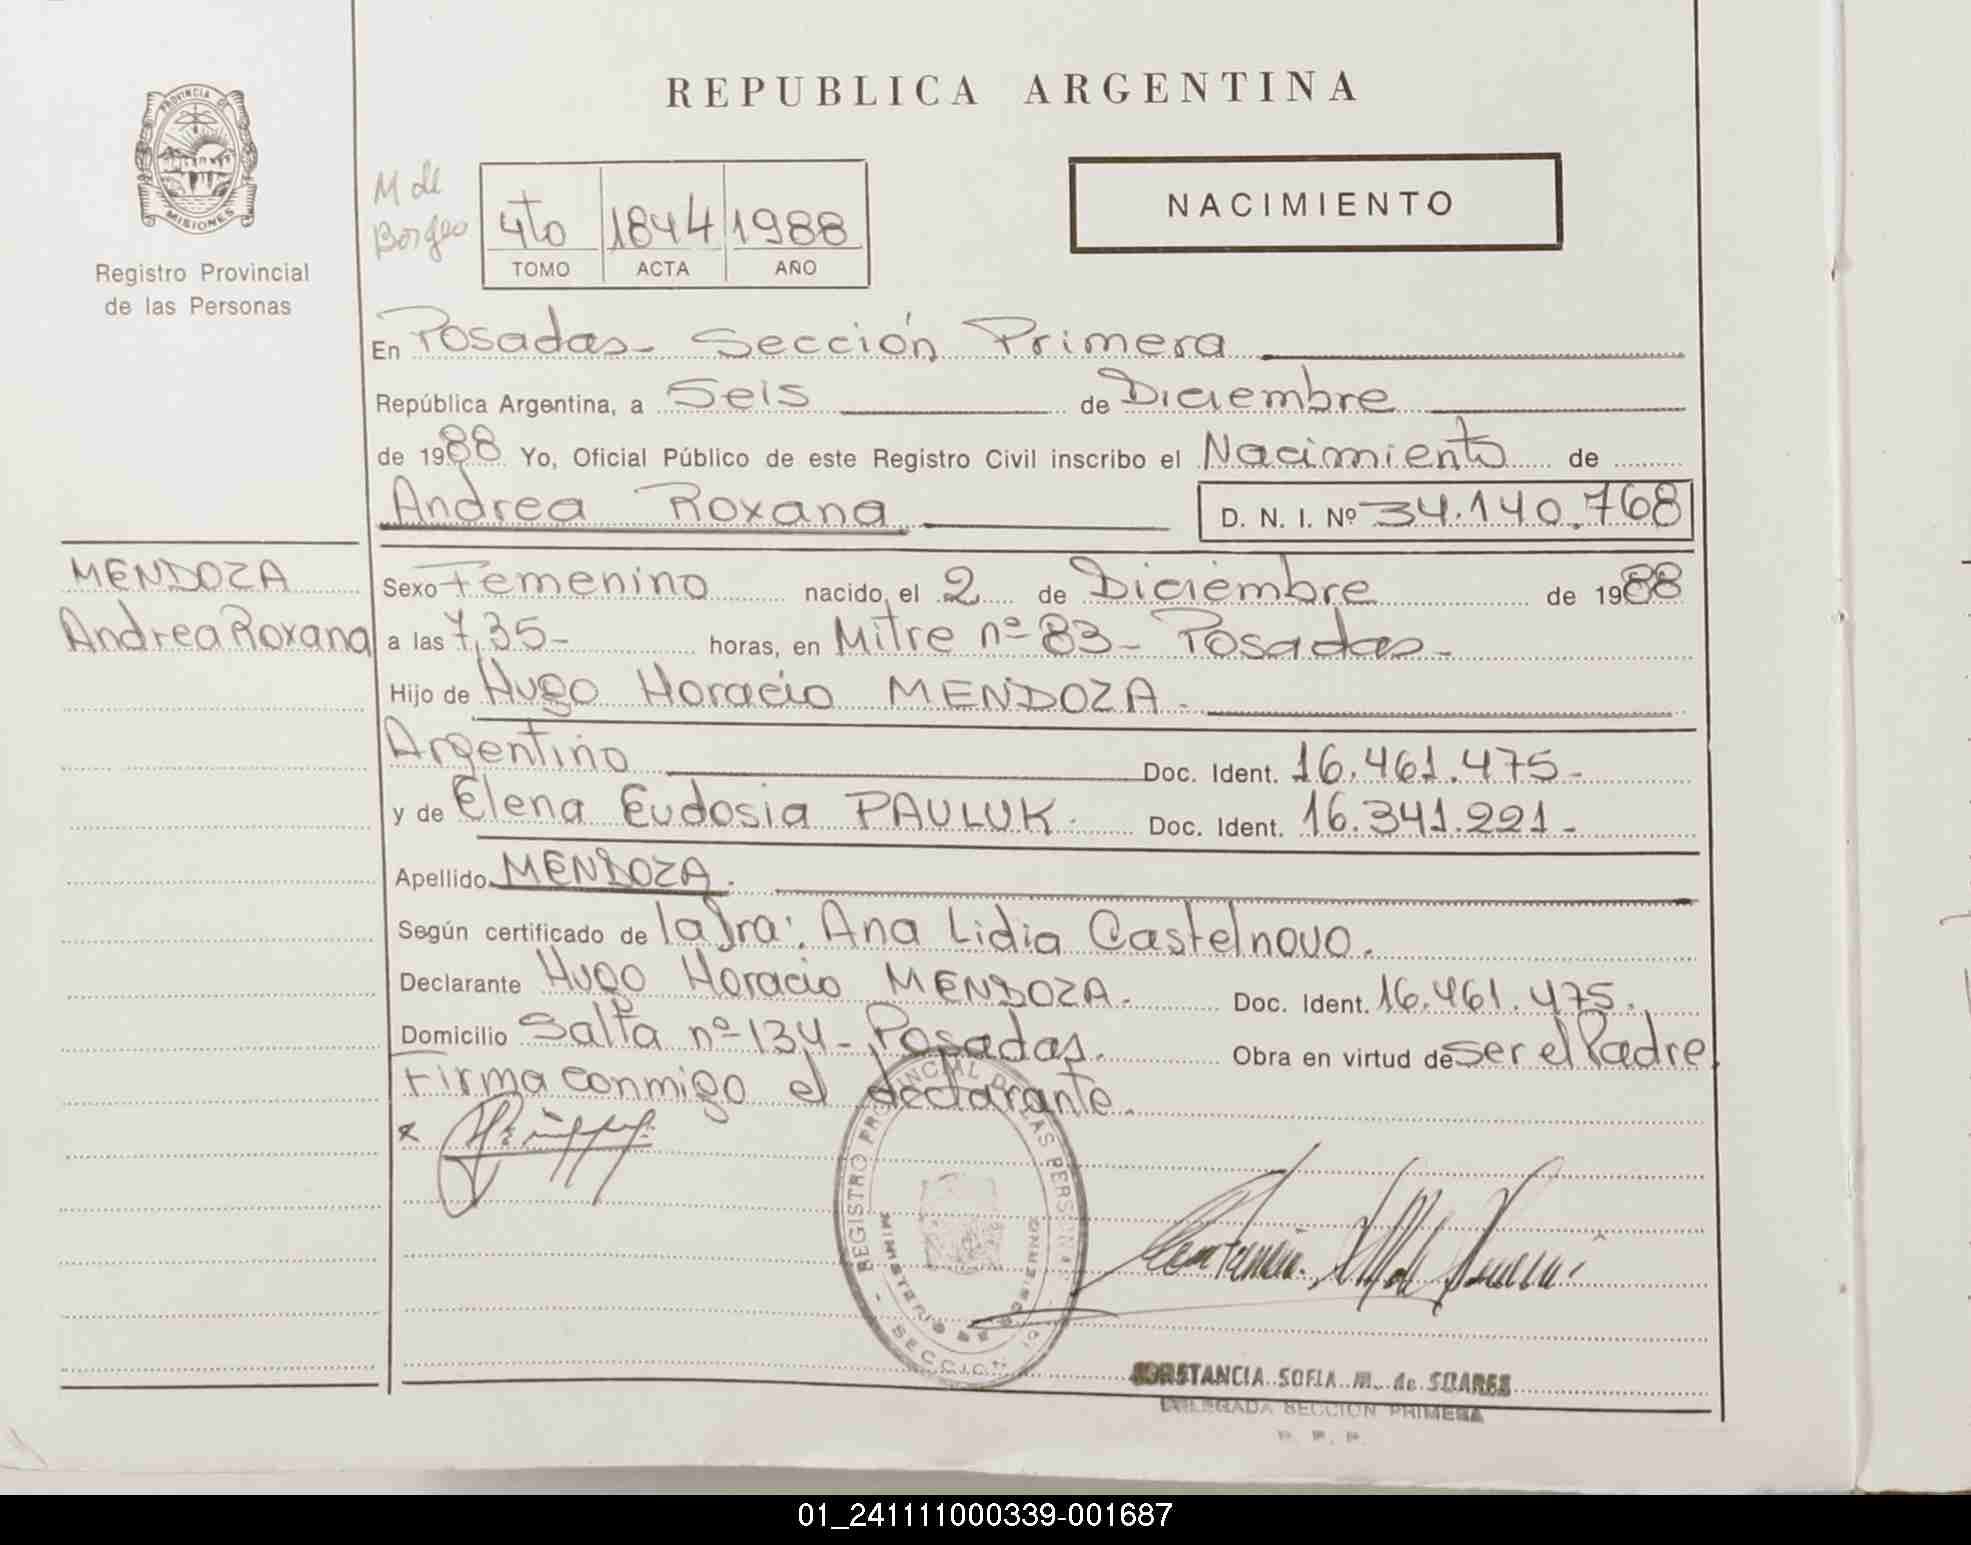 REPUBLICA ARGENTINA
PROVINCIA DE
MISIONES
Registro Provincial
de las Personas
M de
Borges
4to 1844 1988
TOMO ACTA AÑO
NACIMIENTO
En Posadas- Sección Primera
República Argentina, a Seis de Diciembre
de 1988 Yo, Oficial Público de este Registro Civil inscribo el Nacimiento de
Andrea Roxana D. N. I. Nº 34.140.768
MENDOZA
Andrea Roxana
Sexo Femenino nacido el 2 de Diciembre de 1988
a las 7,35- horas, en Mitre nº 83- Posadas-
Hijo de Hugo Horacio MENDOZA.
Argentino Doc. Ident. 16.461.475-
y de Elena Eudosia PAULUK. Doc. Ident. 16.341.221-
Apellido MENDOZA.
Según certificado de la Dra: Ana Lidia Castelnovo.
Declarante Hugo Horacio MENDOZA. Doc. Ident. 16.461.475.
Domicilio Salta nº 134- Posadas. Obra en virtud de ser el Padre.
Firma conmigo el declarante.
REGISTRO PROVINCIAL DE LAS PERSONAS
MINISTERIO DE GOBIERNO
SECCION
CONSTANCIA SOFIA M. de SOARES
DELEGADA SECCION PRIMERA
R. P. P.
01_241111000339-001687